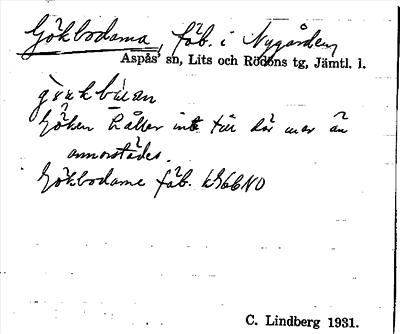 Gökbodarna, fäb. i Nygården,
Aspås' sn, Lits och Rödöns tg, Jämtl. l.
Göken håller inte till där mer än
annorstädes.
Gökbodarne fäb. k966NO
C. Lindberg 1931.